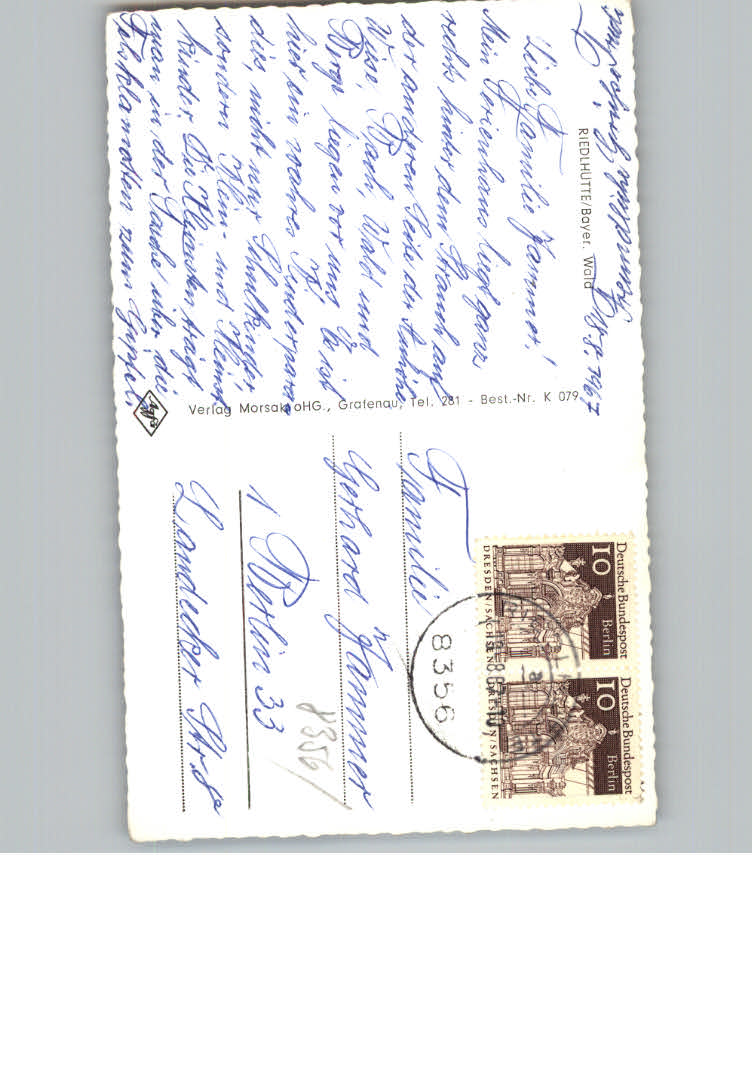 RIEDLHÜTTE/Bayer. Wald
18.8.1967
Liebe Familie Hammer!
Mein Ferienhaus liegt ganz
rechts hinter dem Strauch auf
der anderen Seite der
Wiese, Bach, Wald und
Berge liegen vor uns. Es ist
hier ein wahres Kinderpara-
dies, nicht nur Schulkinder,
sondern Klein- und Kleinst
kinder. Die Kleinsten trägt
man in der über die
zum Gipfel.
Verlag Morsak oHG., Grafenau, Tel. 281 - Best.-Nr. K 079
Agfa
Familie
Gerhard Hammer
1 Berlin 33
Landecker Str.
8356/
Deutsche Bundespost
Berlin
10
DRESDEN/SACHSEN
Deutsche Bundespost
Berlin
10
DRESDEN/SACHSEN
8356